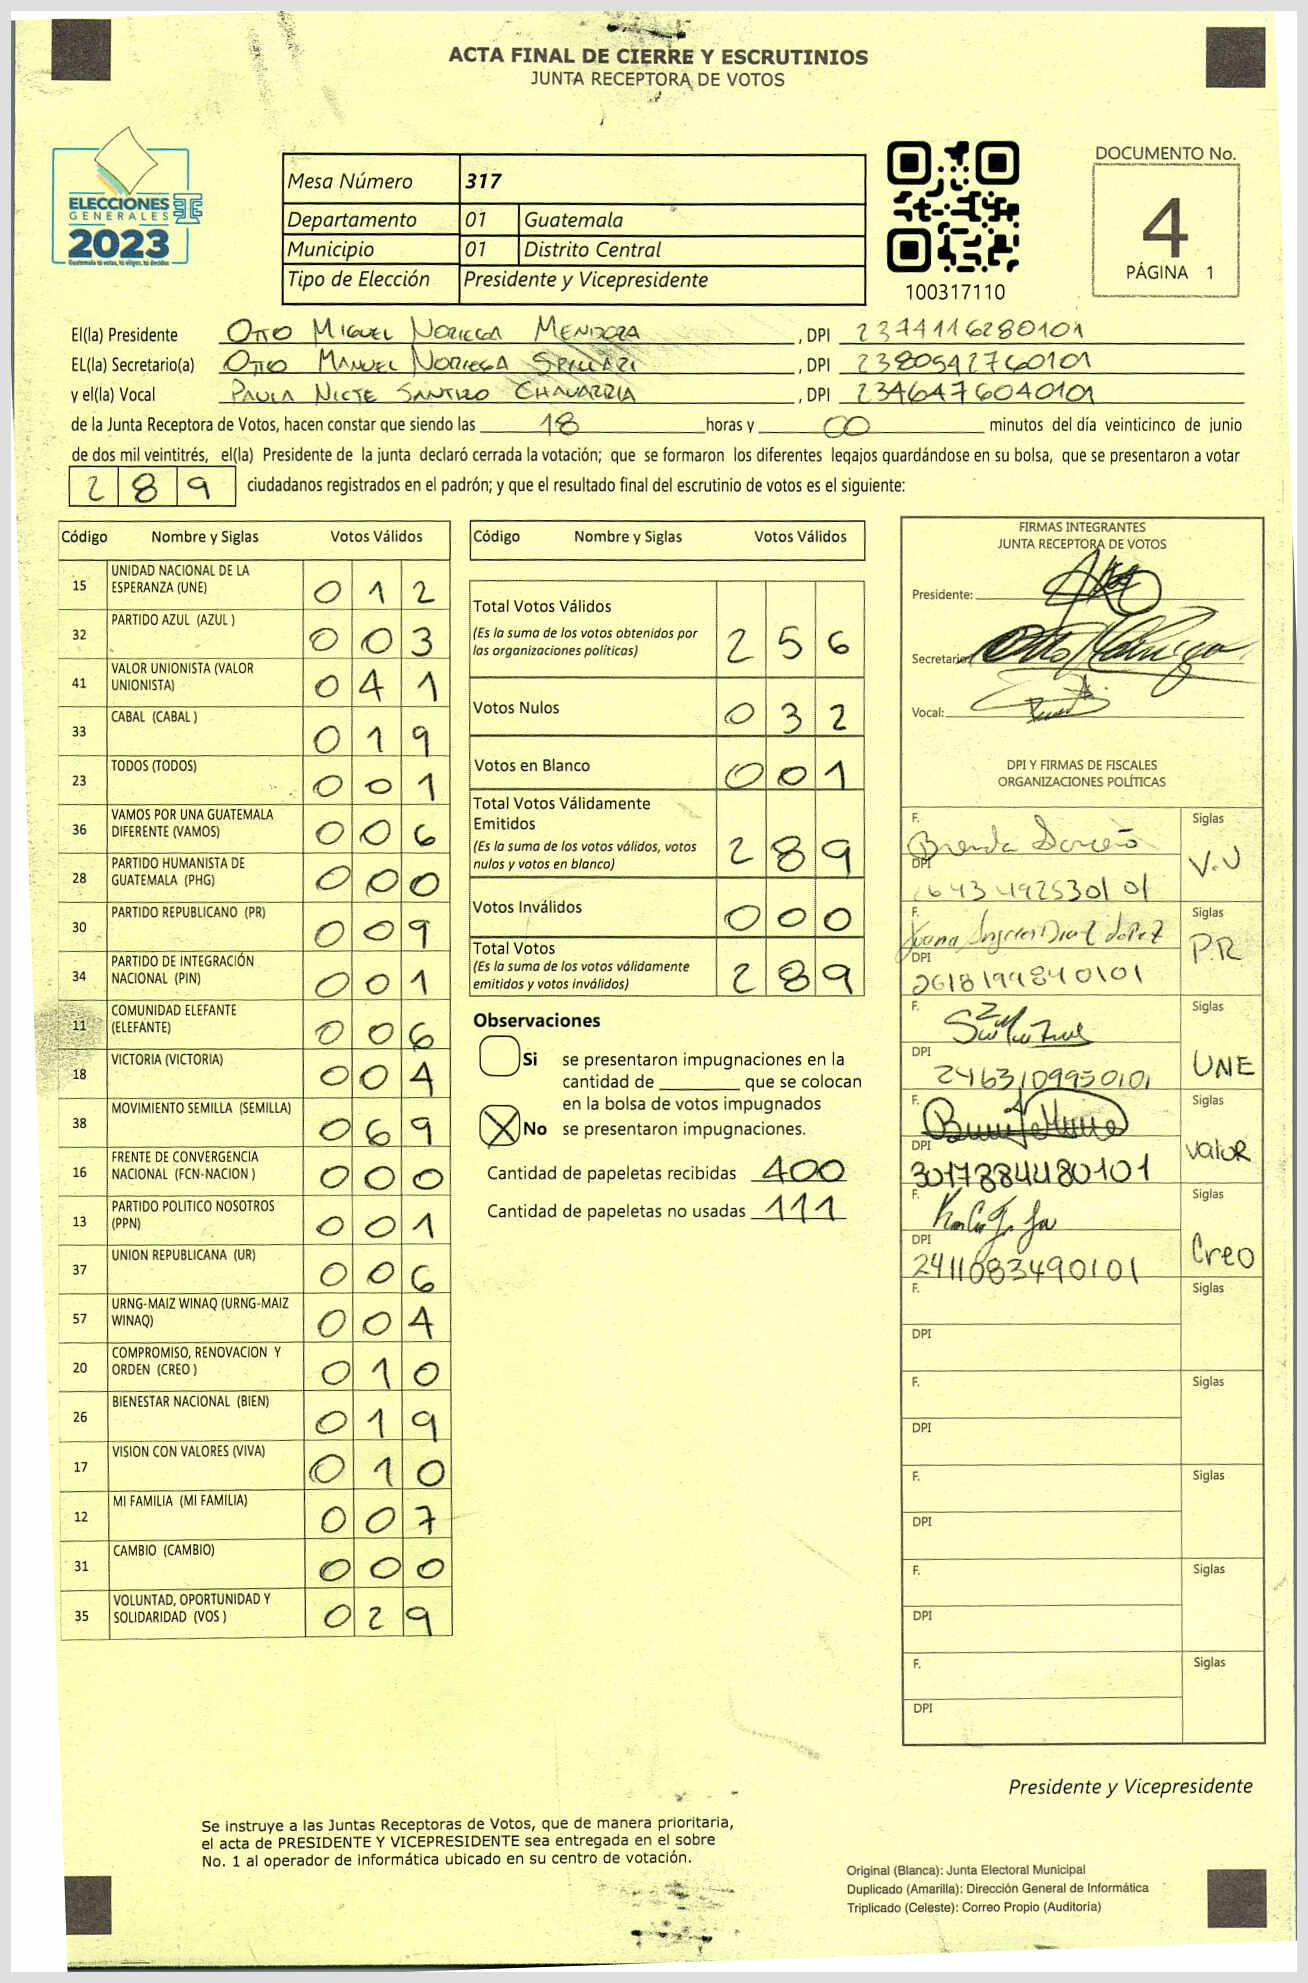 ACTA FINAL DE CIERRE Y ESCRUTINIOS
JUNTA RECEPTORA DE VOTOS
ELECCIONES
GENERALES
2023
Guatemala tú votas, tú eliges, tú decides
Mesa Número 317
Departamento 01 Guatemala
Municipio 01 Distrito Central
Tipo de Elección Presidente y Vicepresidente
100317110
DOCUMENTO No.
4
PÁGINA 1
El(la) Presidente OTTO MIGUEL NORIEGA MENDOZA , DPI 2374116280101
EL(la) Secretario(a) OTTO MANUEL NORIEGA SPILLARI , DPI 2380542760101
y el(la) Vocal PAULA NICTE SANTIZO CHAVARRIA , DPI 2346476040101
de la Junta Receptora de Votos, hacen constar que siendo las 18 horas y 00 minutos del día veinticinco de junio
de dos mil veintitrés, el(la) Presidente de la junta declaró cerrada la votación; que se formaron los diferentes legajos guardándose en su bolsa, que se presentaron a votar
289 ciudadanos registrados en el padrón; y que el resultado final del escrutinio de votos es el siguiente:
Código Nombre y Siglas Votos Válidos
15 UNIDAD NACIONAL DE LA ESPERANZA (UNE) 012
32 PARTIDO AZUL (AZUL ) 003
41 VALOR UNIONISTA (VALOR UNIONISTA) 041
33 CABAL (CABAL ) 019
23 TODOS (TODOS) 001
36 VAMOS POR UNA GUATEMALA DIFERENTE (VAMOS) 006
28 PARTIDO HUMANISTA DE GUATEMALA (PHG) 000
30 PARTIDO REPUBLICANO (PR) 009
34 PARTIDO DE INTEGRACIÓN NACIONAL (PIN) 001
11 COMUNIDAD ELEFANTE (ELEFANTE) 006
18 VICTORIA (VICTORIA) 004
38 MOVIMIENTO SEMILLA (SEMILLA) 069
16 FRENTE DE CONVERGENCIA NACIONAL (FCN-NACION ) 000
13 PARTIDO POLITICO NOSOTROS (PPN) 001
37 UNION REPUBLICANA (UR) 006
57 URNG-MAIZ WINAQ (URNG-MAIZ WINAQ) 004
20 COMPROMISO, RENOVACION Y ORDEN (CREO ) 010
26 BIENESTAR NACIONAL (BIEN) 019
17 VISION CON VALORES (VIVA) 010
12 MI FAMILIA (MI FAMILIA) 007
31 CAMBIO (CAMBIO) 000
35 VOLUNTAD, OPORTUNIDAD Y SOLIDARIDAD (VOS ) 029
Código Nombre y Siglas Votos Válidos
Total Votos Válidos 256
(Es la suma de los votos obtenidos por
las organizaciones políticas)
Votos Nulos 032
Votos en Blanco 001
Total Votos Válidamente
Emitidos 289
(Es la suma de los votos válidos, votos
nulos y votos en blanco)
Votos Inválidos 000
Total Votos 289
(Es la suma de los votos válidamente
emitidos y votos inválidos)
Observaciones
Si se presentaron impugnaciones en la
cantidad de ________ que se colocan
en la bolsa de votos impugnados
X No se presentaron impugnaciones.
Cantidad de papeletas recibidas 400
Cantidad de papeletas no usadas 111
FIRMAS INTEGRANTES
JUNTA RECEPTORA DE VOTOS
Presidente:
Secretario:
Vocal:
DPI Y FIRMAS DE FISCALES
ORGANIZACIONES POLÍTICAS
F. Brenda Siglas
DPI V.U
2643492530101
F. Juana Díaz López Siglas
DPI P.R
2618199840101
F. Siglas
DPI UNE
2463109950101
F. Siglas
DPI Valor
3017884480101
F. Siglas
DPI Creo
2411083490101
F. Siglas
DPI
F. Siglas
DPI
F. Siglas
DPI
F. Siglas
DPI
F. Siglas
DPI
Presidente y Vicepresidente
Se instruye a las Juntas Receptoras de Votos, que de manera prioritaria,
el acta de PRESIDENTE Y VICEPRESIDENTE sea entregada en el sobre
No. 1 al operador de informática ubicado en su centro de votación.
Original (Blanca): Junta Electoral Municipal
Duplicado (Amarilla): Dirección General de Informática
Triplicado (Celeste): Correo Propio (Auditoría)